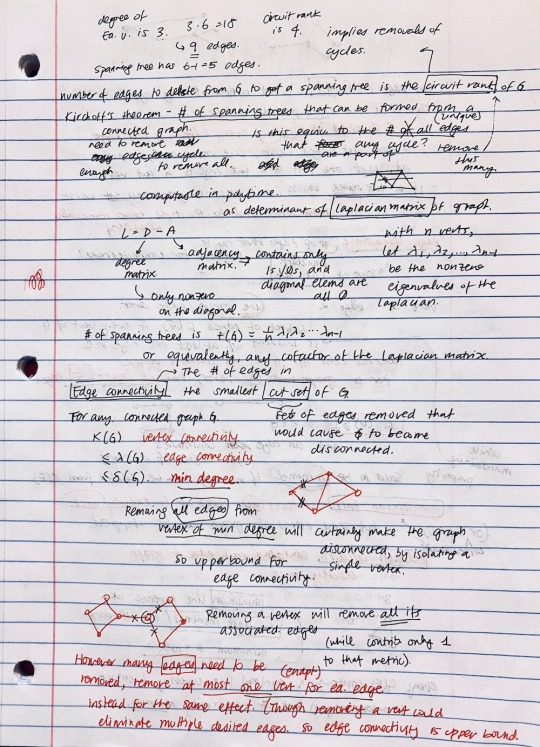 degree of
Ea. v. is 3. 3·6 = 18 circuit rank is 4. implies removals of cycles.
↳ 9 edges.
spanning tree has 6-1=5 edges.
number of edges to delete from G to get a spanning tree is the circuit rank of G
Kirchoff's theorem - # of spanning trees that can be formed from a
connected graph. Is this equiv to the # of all (unique) edges
need to remove that any cycle? remove
enough edges to remove all. are a part of this many
computable in polytime.
as determinant of Laplacian matrix of graph.
L = D - A with n verts,
degree matrix. adjacency matrix. → contains only 1s, 0s, and diagonal elems are all 0
let λ1, λ2, ..., λn-1 be the nonzero eigenvalues of the Laplacian.
↳ Only nonzero on the diagonal.
# of spanning trees is t(G) = 1/n λ1 λ2 ··· λn-1
or equivalently, any cofactor of the Laplacian matrix.
→ The # of edges in
Edge connectivity the smallest cut set of G
For any connected graph G. set of edges removed that
K(G) vertex connectivity would cause G to become
≤ λ(G) edge connectivity disconnected.
≤ δ(G). min degree.
Removing all edges from
vertex of min degree will certainly make the graph
disconnected, by isolating a
so upperbound for single vertex.
edge connectivity.
Removing a vertex will remove all its
associated edges
(while contrib only 1
to that metric).
However many edges need to be
removed, remove at most one vert (endpt) for ea. edge
instead for the same effect. (Though removing a vert could
eliminate multiple desired edges. so edge connectivity is upper bound.